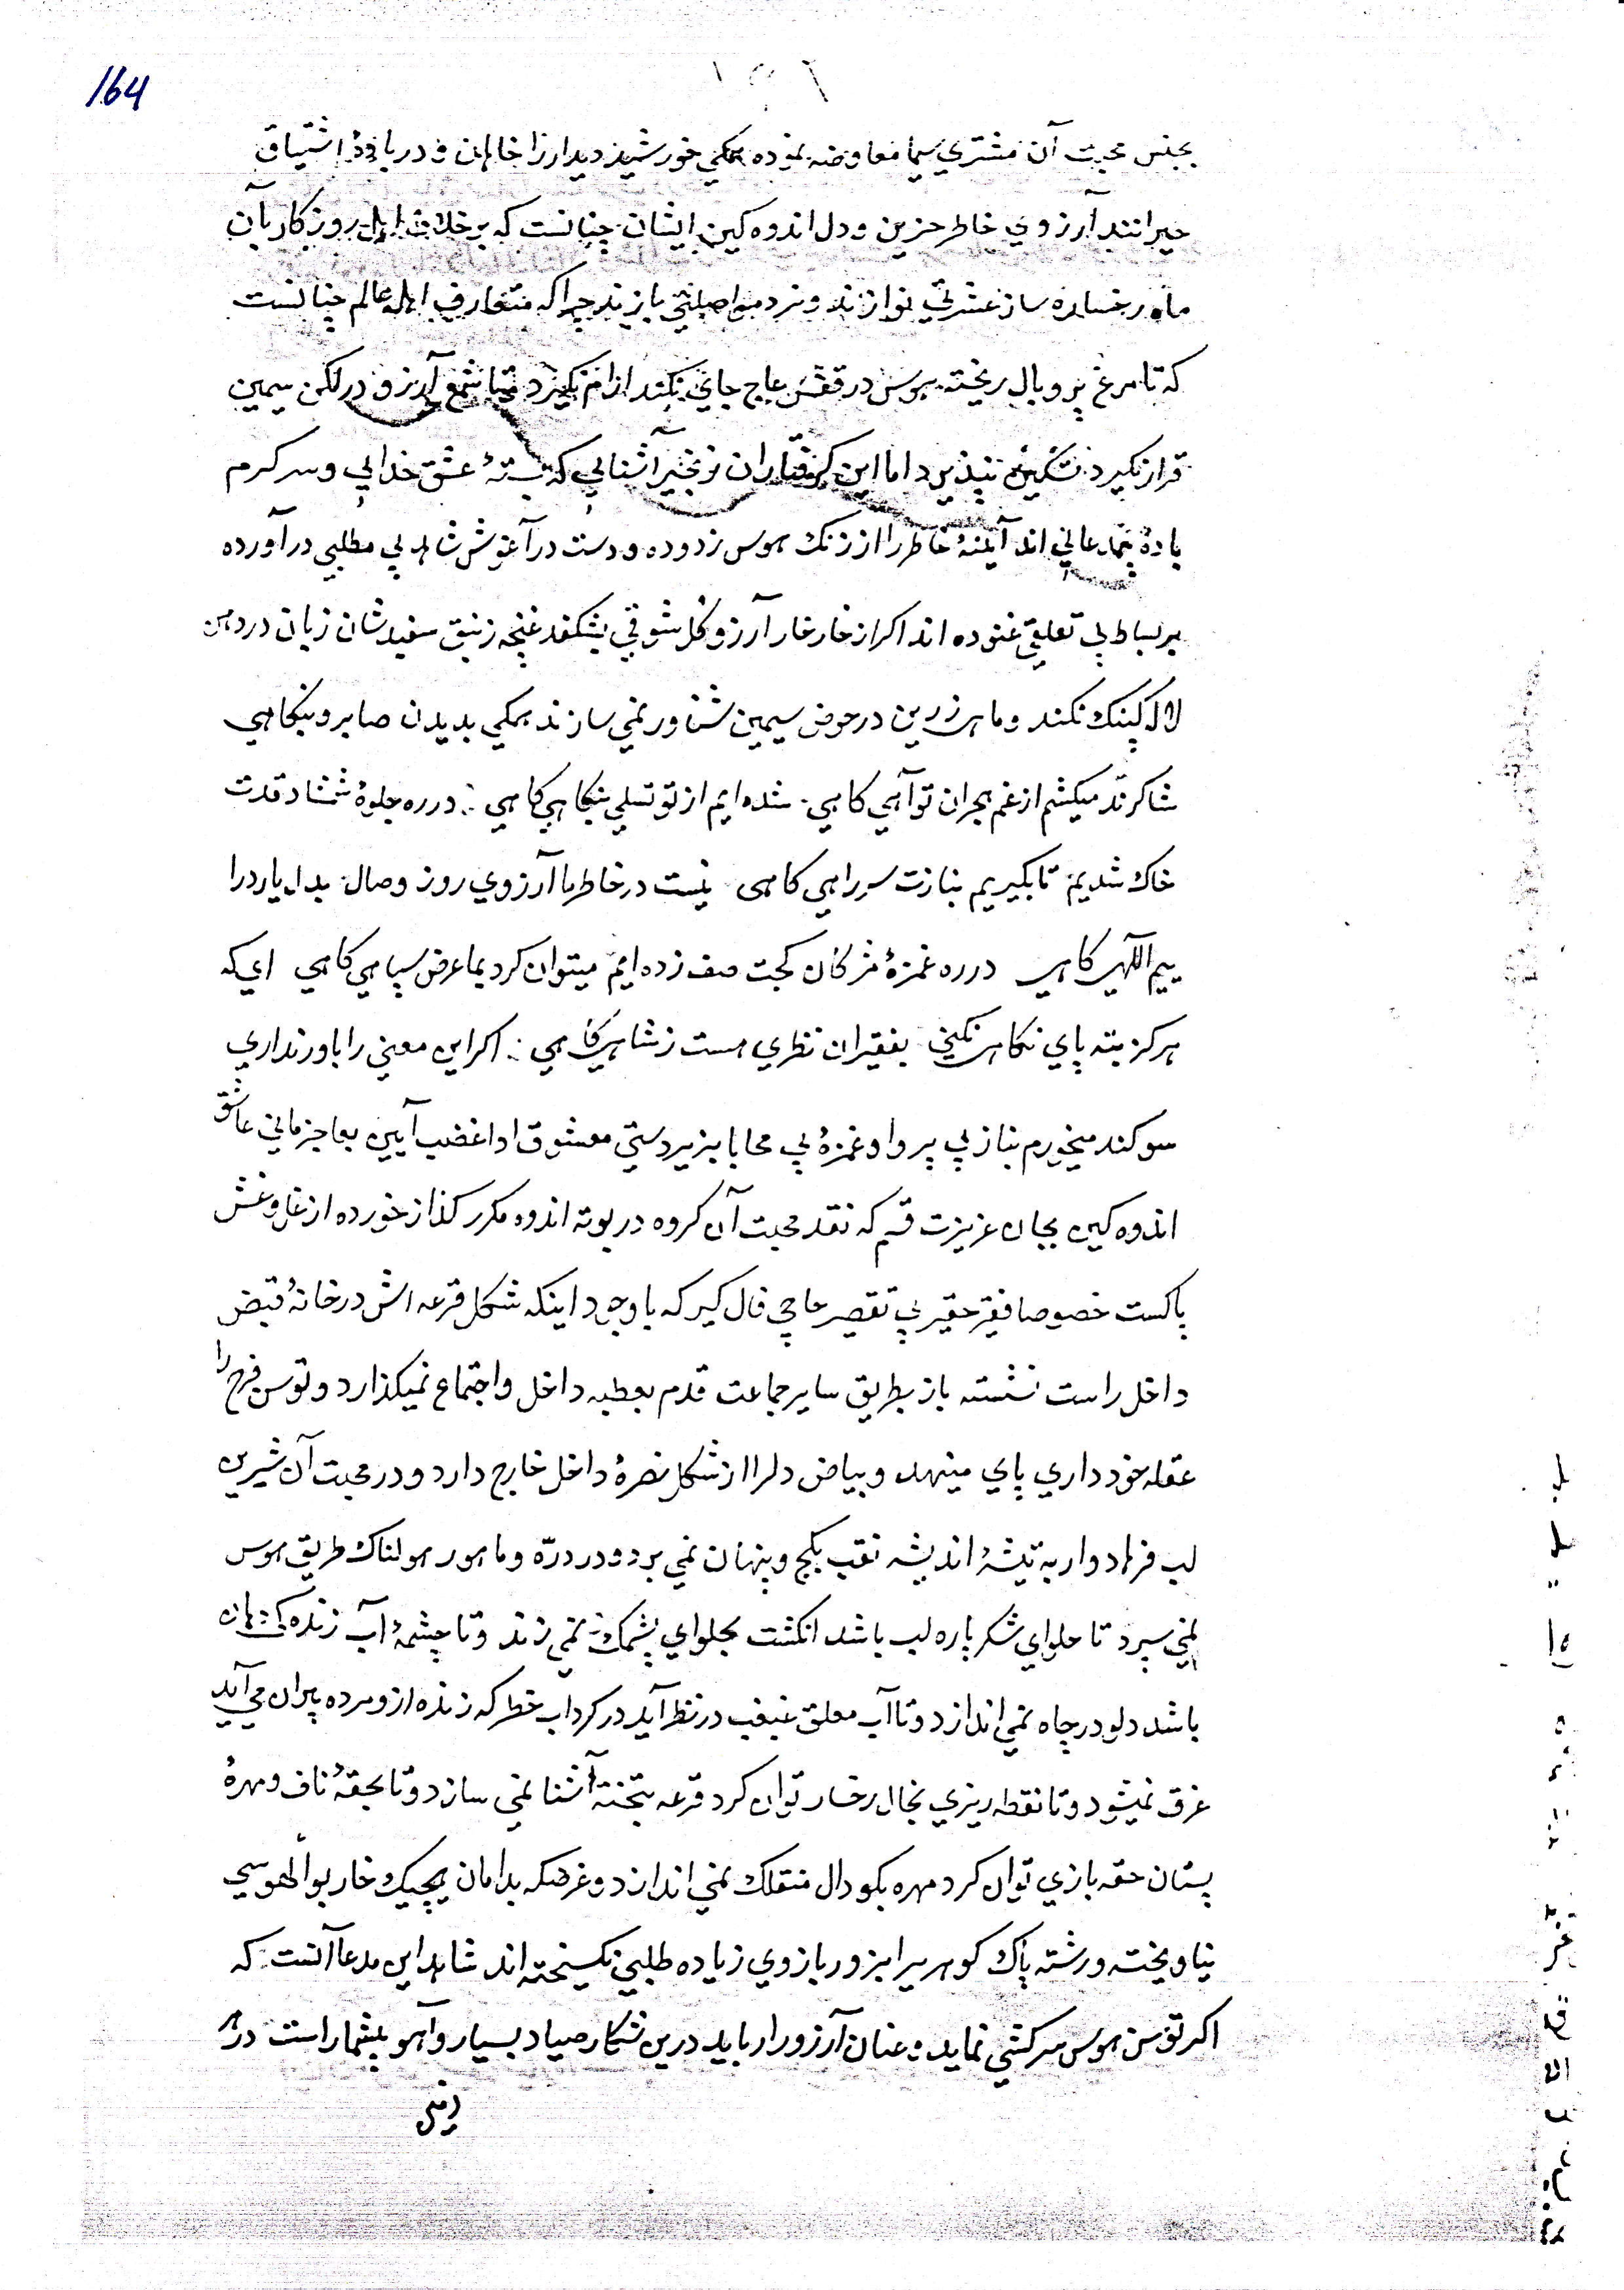 164
بجنس محبت آن مشتري سيما معاوضه نموده همكي خورشيد ديدار را خواهان و در باديهٔ اشتياق
حيرانند آرزوي خاطر حزين و دل اندوه كين ايشان چنانست كه برخلاف اهل روزكار بآن
ماه رخساره ساز عشرتي نوازند و نرد مواصلتي بازند چرا كه متعارف اهل عالم چنانست
كه تا مرغ پر و بال ريخته هوس در قفس عاج جاي نكند ارام نكيرد و تا شمع آرزو در لكن سيمين
قرار نكيرد تسكين نپذيرد اما اين كرفتاران زنجير آشنايي كه بستهٔ عشق خدايي و سركرم
بادهٔ بيمدعايي اند آيينهٔ خاطر را از زنك هوس زدوده و دست در آغوش شاهد بي مطلبي درآورده
بر بساط بي تعلقي غنوده اند اكر از خار خار آرزو كل شوقي بشكفد غنچه زنبق سفيدشان زبان در دهن
لال كينك نكند و ماهي زرين در حوض سيمين شناور نمي سازند همكي بديدن صابر و بنكاهي
شاكرند ميكشم از غم هجران تو آهي كاهي شده ايم از تو تسلي بنكاهي كاهي در ره جلوهٔ شمشاد قدت
خاك شديم تا بكيريم بنازت سر راهي كاهي نيست در خاطر ما آرزوي روز وصال بدل يار درا
ييم الهي كاهي در ره غمزهٔ مژكان كجت صف زده ايم ميتوان كرد بما عرض سپاهي كاهي اي كه
هركز بته پاي نكاهي نكني بفقيران نظري هست ز شاهي كاهي اكر اين معني را باور نداري
سوكند ميخورم بناز بي پروا و غمزهٔ بي محابا بزبردستي معشوق ادا غضب آيين بعاجز ماني عاشق
اندوه كين بجان عزيزت قسم كه نقد محبت آن كروه در بوته اندوه مكرر كداز خورده از غل و غش
پاكست خصوصا فقير حقير بي تقصير حاجي فال كير كه با وجود اينكه شكل قرعه اش در خانهٔ قبض
داخل راست نشسته باز بطريق ساير جماعت قدم بعطبه داخل و اجتماع نميكذارد و توسن فرح را
عقله خود داري پاي مينهد و بياض دلرا از شكل نصرهٔ داخل خارج دارد و در محبت آن شيرين
لب فرهاد وار به تيشهٔ انديشه نقب بكنج و پنهان نمي برد و در درّه و ماهور هولناك طريق هوس
نمي سپرد تا حلواي شكرپاره لب باشد انكشت بحلواي پشمك نمي زند و تا چشمهٔ آب زنده كي دهان
باشد دلو در چاه نمي اندازد و تا آب معلق غبغب در نظر آيد در كرداب خطر كه زنده ازو مرده بيران مي آيد
غرق نميشود و تا نقطه ريزي بخال رخسار توان كرد قرعه بتخته آشنا نمي سازد و تا بحقهٔ ناف و مهرهٔ
پستان حقه بازي توان كرد مهره بكودال منقلك نمي اندازد و غرضكه بدامان هيچيك خار بوالهوسي
نياويخته و رشته پاك كوهريرا بزور بازوي زياده طلبي نكسيخته اند شاهد اين مدعا آنست كه
اكر توسن هوس سركشي نمايد و عنان آرزو را ربايد درين شكار صياد بسيار و آهو بيشمار است در هر